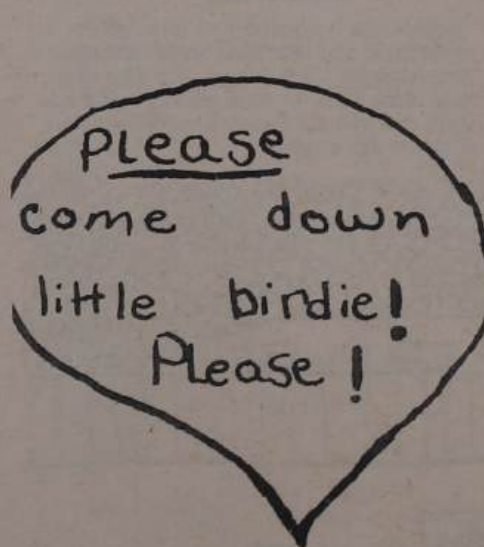 Please
come down
little birdie!
Please!